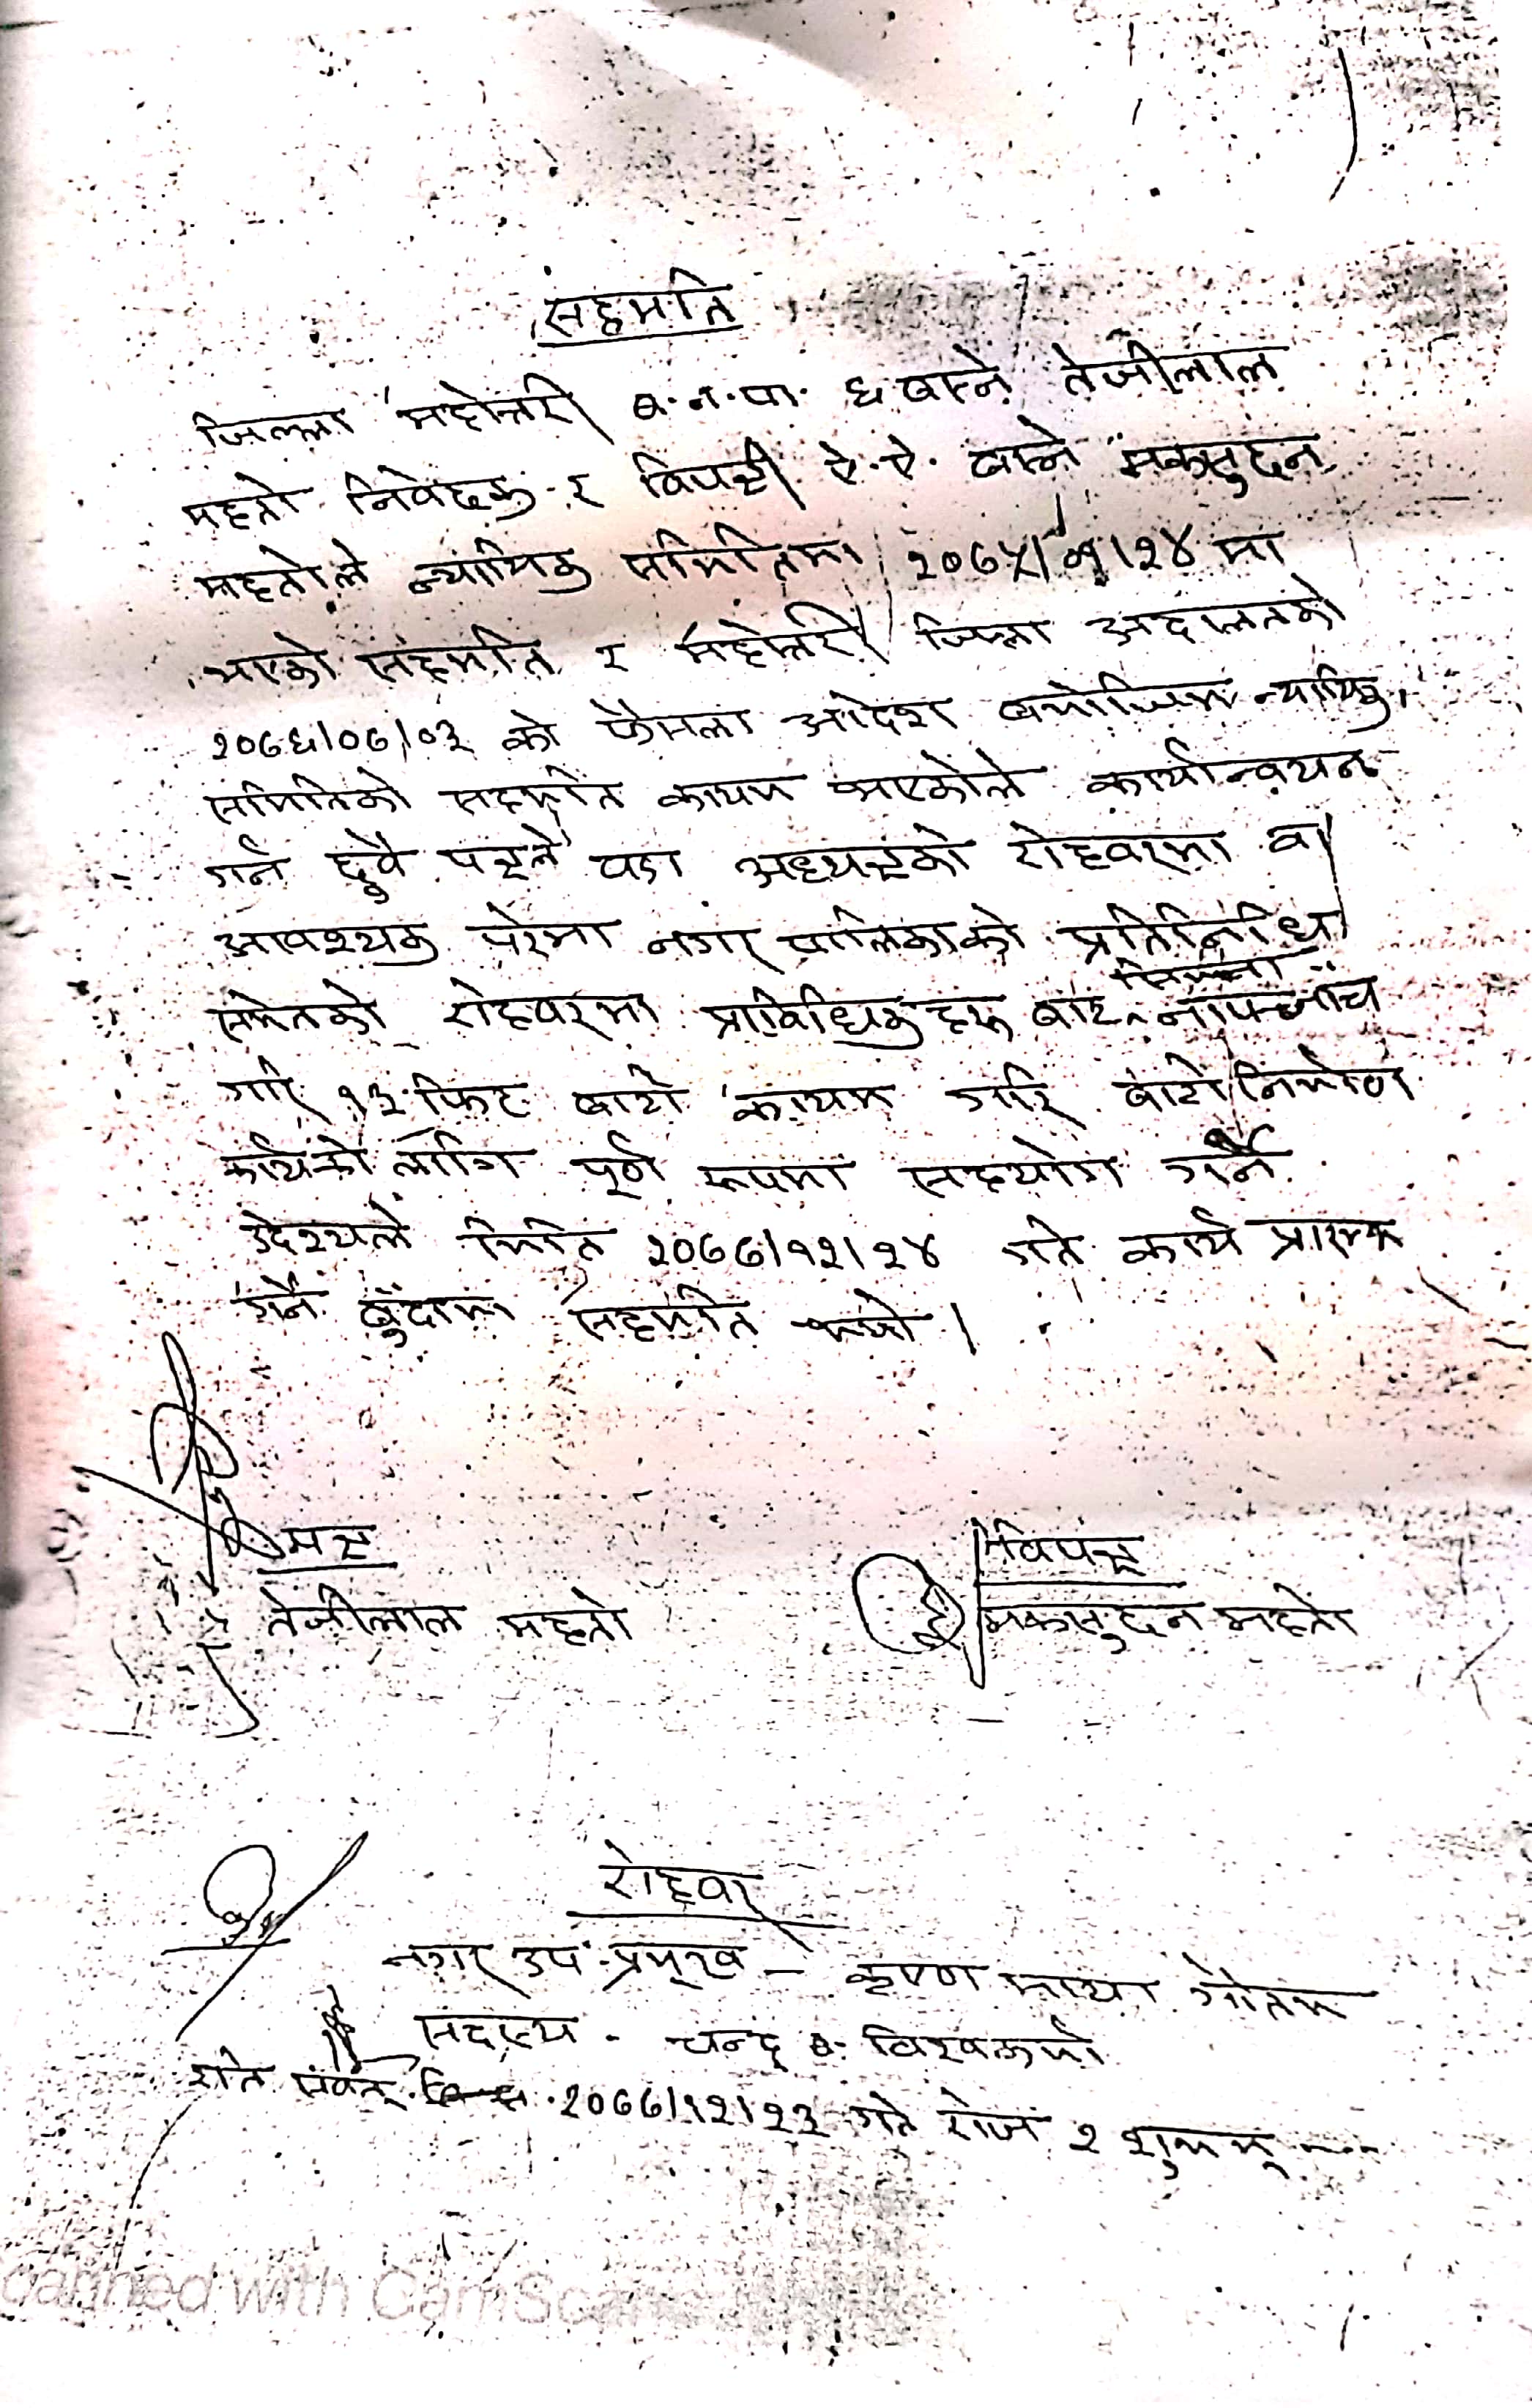 सहमति
जिल्ला महोत्तरी ब.न.पा. ६ बस्ने तेजीलाल
महतो निवेदक र विपक्षी ऐ.ऐ. बस्ने मकसुदन
महतोले न्यायिक समितिमा २०७५/०९/२४ मा
भएको सहमति र महोत्तरी जिल्ला अदालतको
२०७६/०७/०३ को फैसला आदेश बमोजिम न्यायिक
समितिको सहमति कायम भएकोले कार्यान्वयन
गर्न दुवै पक्षले वडा अध्यक्षको रोहवरमा वा
आवश्यक परेमा नगरपालिकाको प्रतिनिधि
समेतको रोहवरमा प्राविधिकहरू बाट सिमाना नापजाँच
गरि १३ फिट बाटो कायम गरि बाटो निर्माण
कार्यको लागि पूर्ण रूपमा सहयोग गर्ने
उदेश्यले मिति २०७७/१२/२४ गते कार्य प्रारम्भ
गर्ने बुंदामा सहमति भयो ।
पक्ष
तेजीलाल महतो
विपक्ष
मकसुदन महतो
रोहवर
नगर उप-प्रमुख - कृष्ण माया गौतम
सदस्य - चन्द्र ब. विश्वकर्मा
इति संवत् २०७७/१२/२३ गते रोज २ शुभम्
canned with CamSc